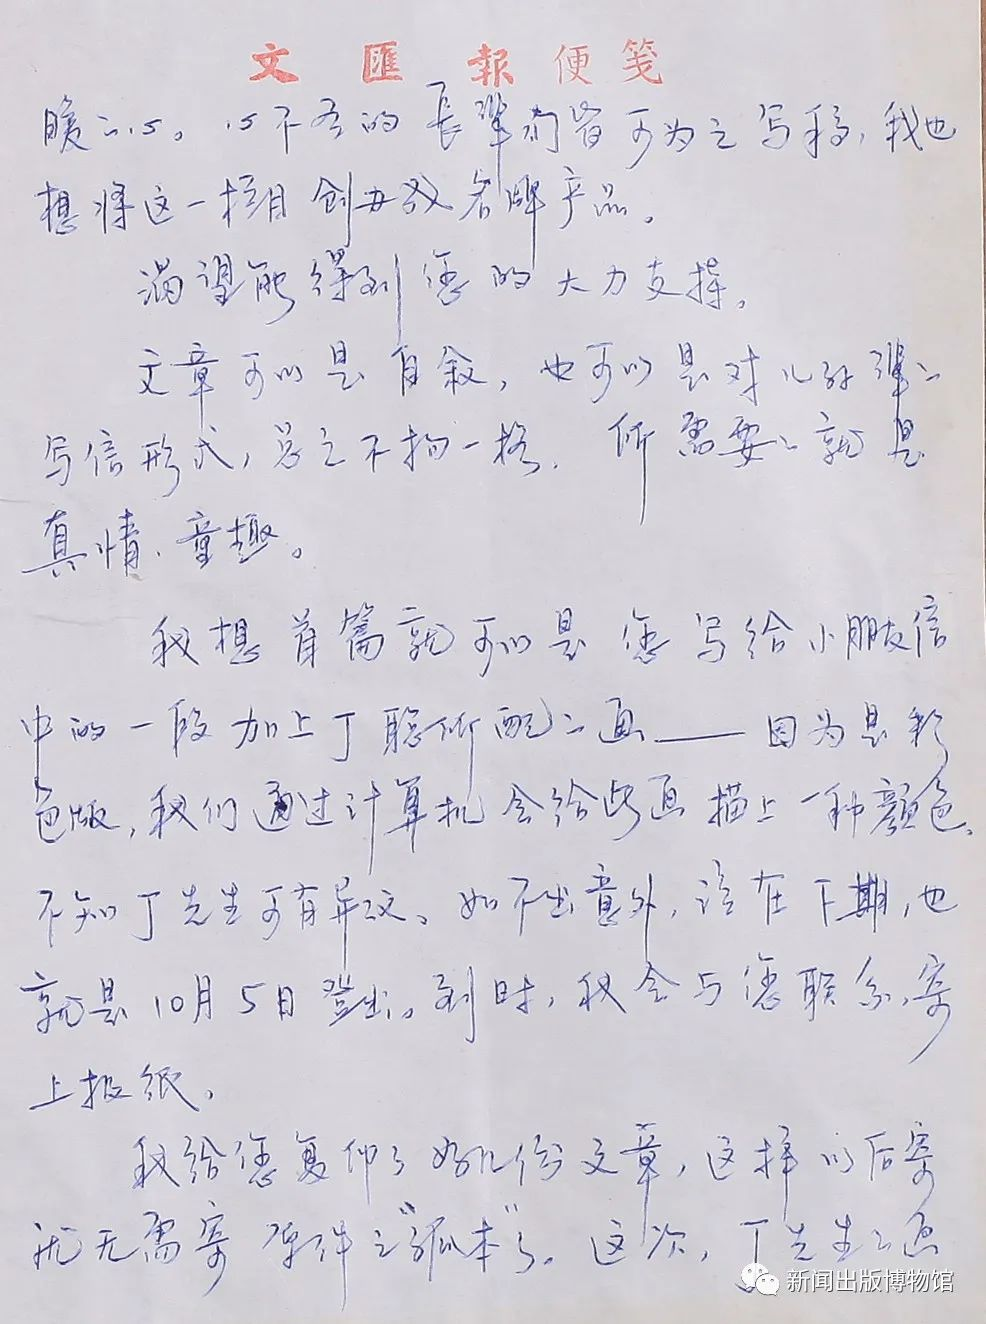 文匯報便箋
暖之心。心不老的長輩们皆可为之写稿，我也
想将这一栏目创办成名牌产品。
渴望能得到您的大力支持。
文章可以是自叙，也可以是对儿孙辈之
写信形式，总之不拘一格。所需要之就是
真情、童趣。
我想首篇就可以是您写给小朋友信
中的一段加上丁聪所配之画——因为是彩
色版，我们通过计算机会给此画描上一种颜色。
不知丁先生可有异议。如不出意外，该在下期，也
就是10月5日登出。到时，我会与您联系，寄
上报纸。
我给您复印了好几份文章，这样以后寄
就无需寄原件之“孤本”了。这次，丁先生之画
新闻出版博物馆